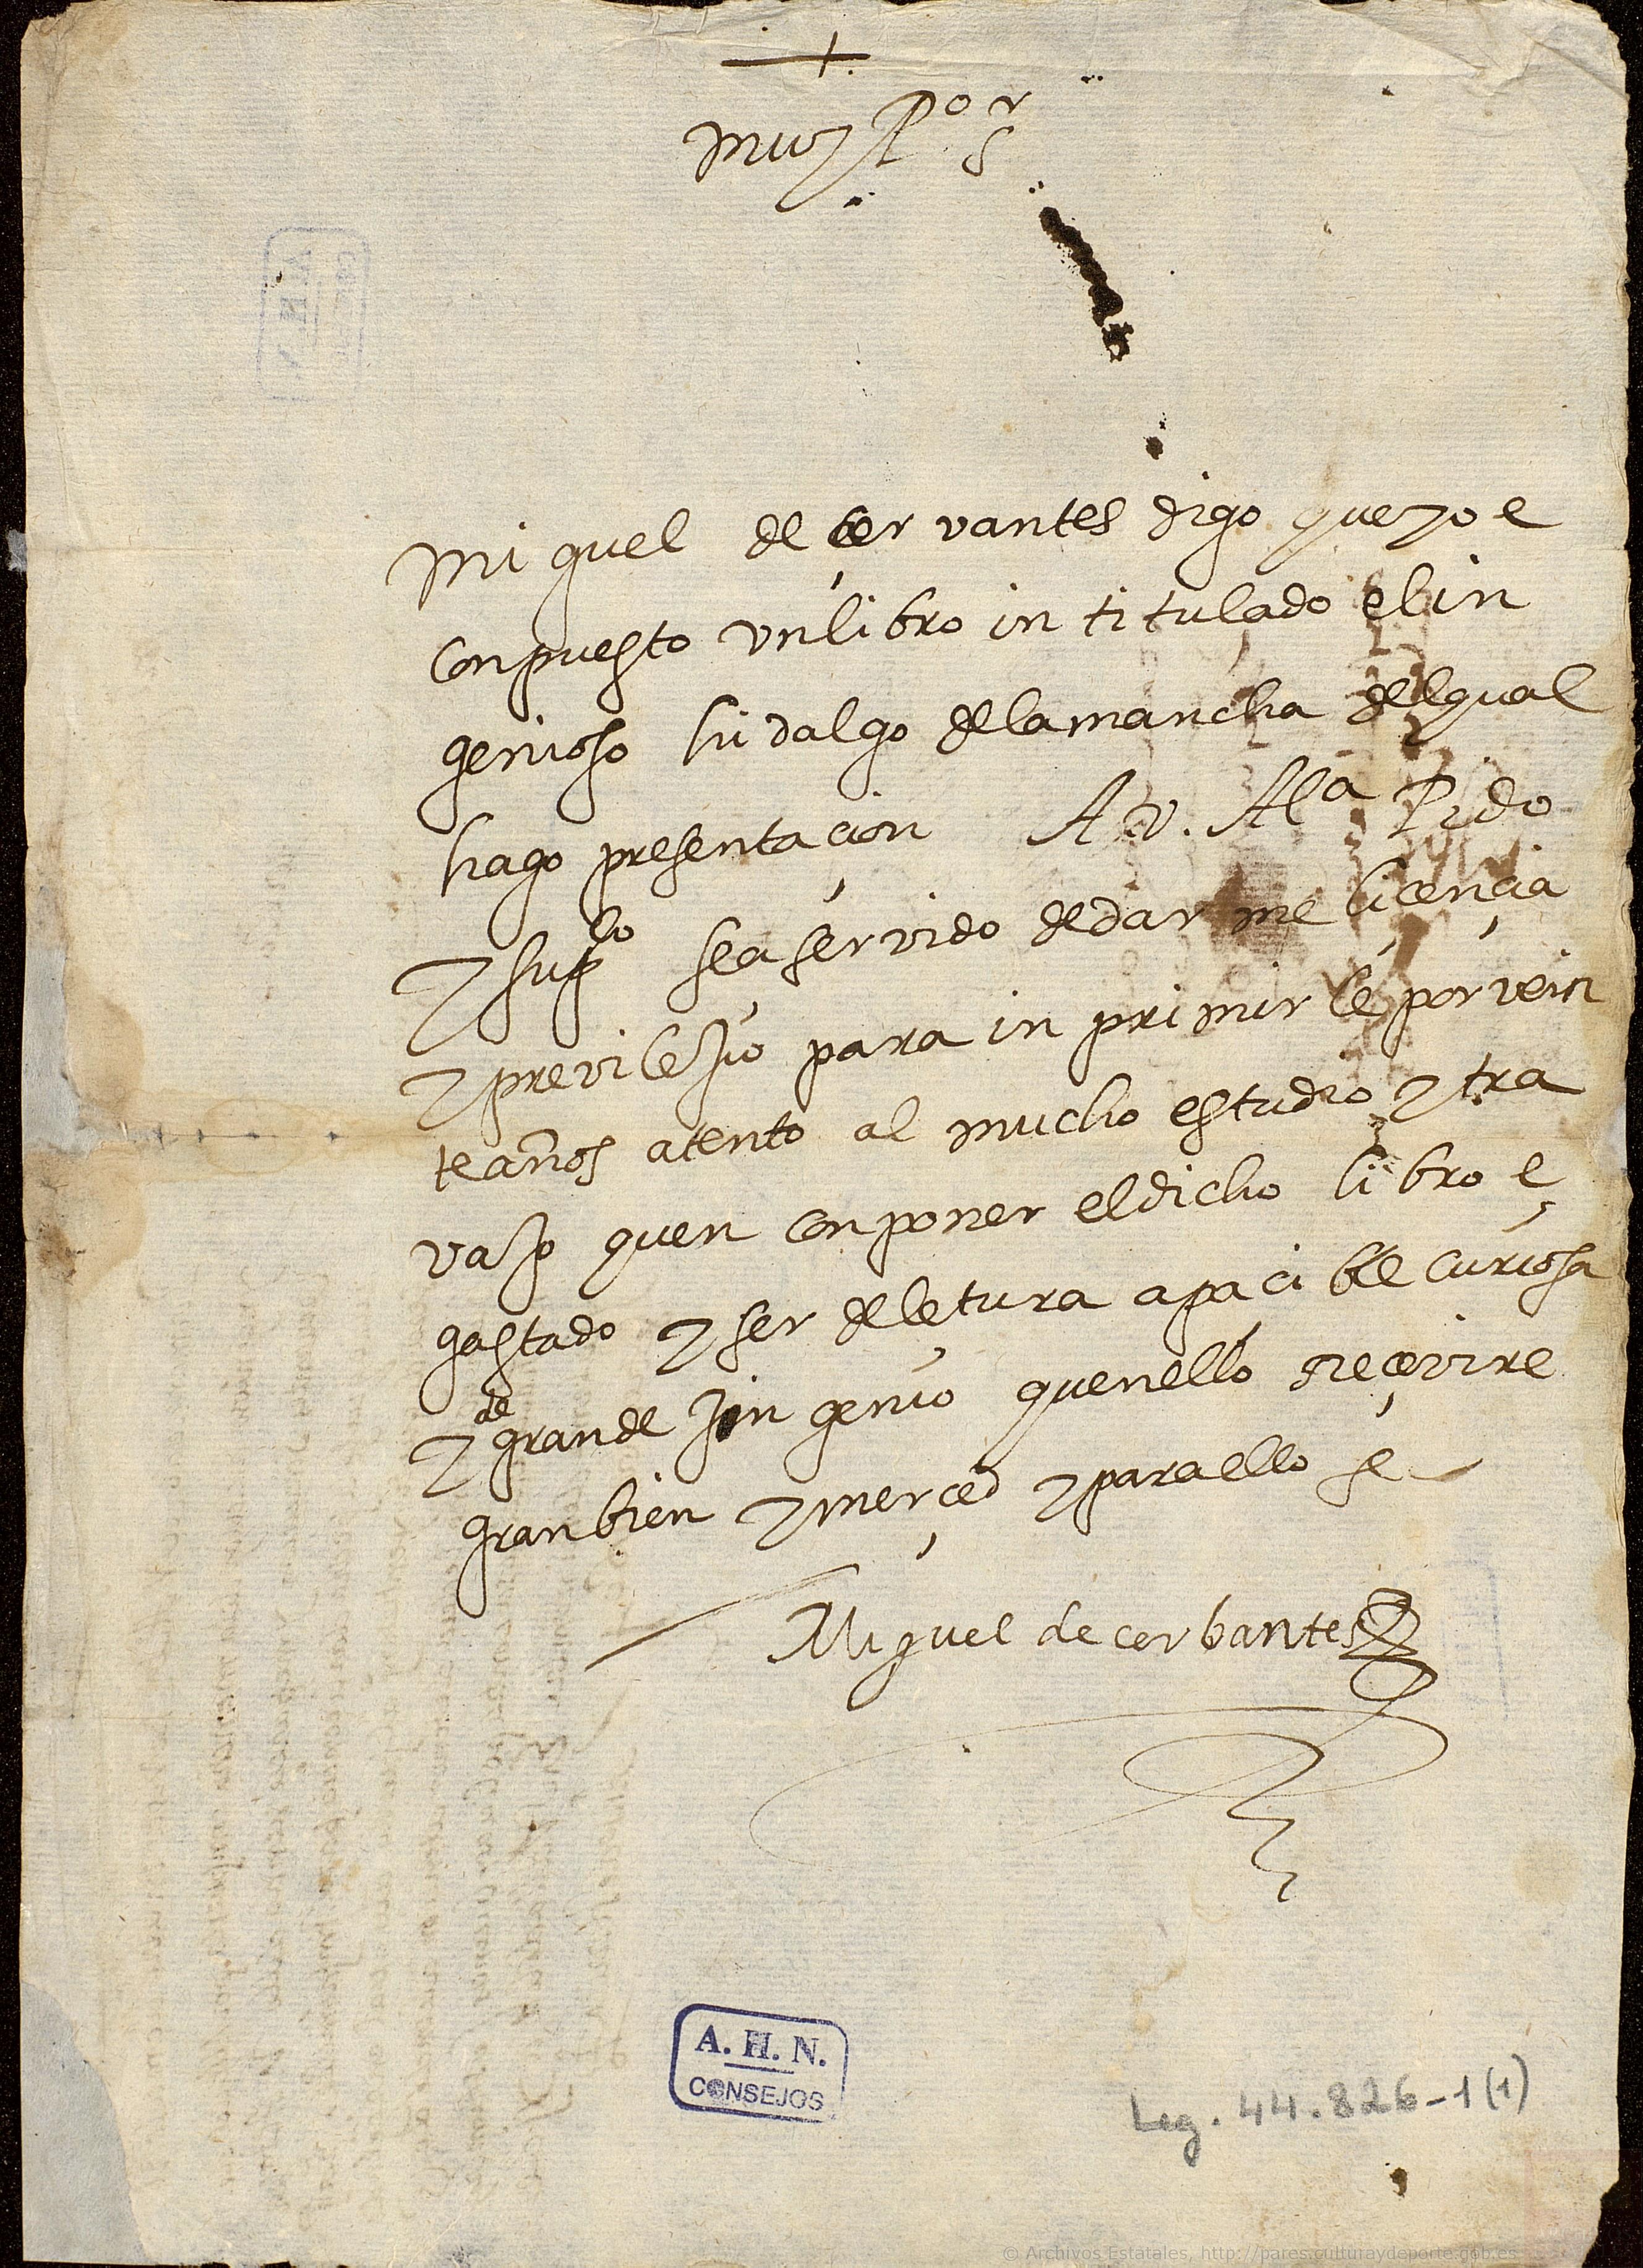 +
muy Pº Sʳ
miguel de çervantes digo que yo e
conpuesto vn libro intitulado el in
genioso hidalgo de la mancha del qual
hago presentaçion A V. Alª Pido
y supᶜᵒ sea servido de dar me liçençia
y previlegio para inprimirle por vein
te años atento al mucho estudio y tra
vajo quen conponer el dicho libro e
gastado y ser de letura apaçible curiosa
y de grande ingenio quenello reçevire
gran bien y merçed y para ello ec
Miguel de cerbantes
A. H. N.
CONSEJOS
Leg. 44.826-1(1)
© Archivos Estatales, http://pares.culturaydeporte.gob.es